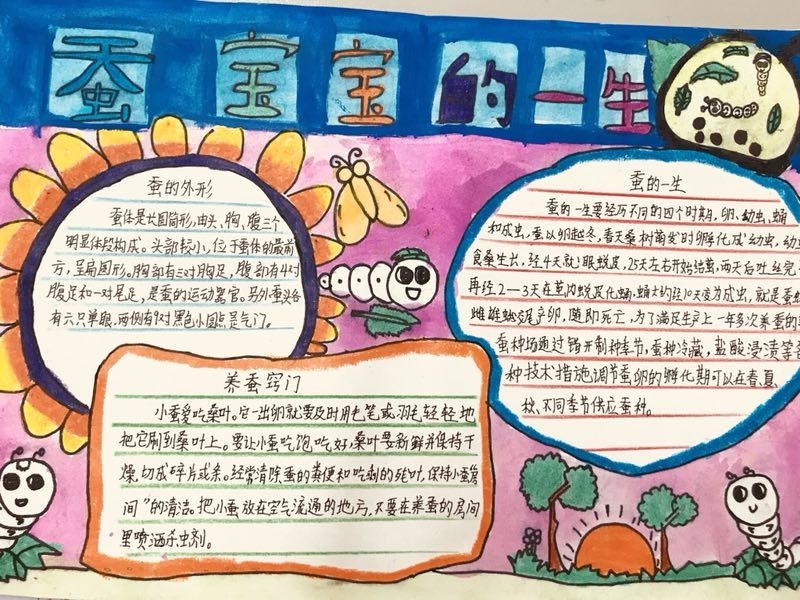 蚕宝宝的一生
蚕的外形
蚕体是长圆筒形,由头、胸、腹三个
明显体段构成。头部较小,位于蚕体的最前
方,呈扁圆形。胸部有三对胸足,腹部有4对
腹足和一对尾足,是蚕的运动器官。另外蚕头各
有六只单眼,两侧有9对黑色小圆点是气门。
养蚕窍门
小蚕爱吃桑叶。它一出卵就要及时用毛笔或羽毛轻轻地
把它刷到桑叶上。要让小蚕吃饱吃好,桑叶要新鲜并保持干
燥,切成碎片或条。经常清除蚕的粪便和吃剩的死叶,保持小蚕房
间”的清洁。把小蚕放在空气流通的地方,不要在养蚕的房间
里喷洒杀虫剂。
蚕的一生
蚕的一生要经历不同的四个时期,卵、幼虫、蛹
和成虫,蚕以卵越冬,春天桑树萌发时孵化成幼虫,幼
食桑生长,经4天就眠蜕皮,25天左右开始结茧,两天后吐丝完
再经2—3天在茧内蜕皮化蛹,蛹大约经10天变为成虫,就是蚕
雌雄蛾交尾产卵,随即死亡,为了满足生产上一年多次养蚕的
蚕种场通过错开制种季节,蚕种冷藏,盐酸浸渍等
种技术措施,调节蚕卵的孵化期可以在春、夏、
秋、不同季节供应蚕种。